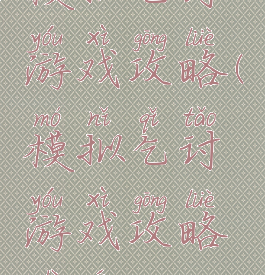 yóu xì gōng lüè
游戏攻略(
mó nǐ qǐ tǎo
模拟乞讨
yóu xì gōng lüè
游戏攻略